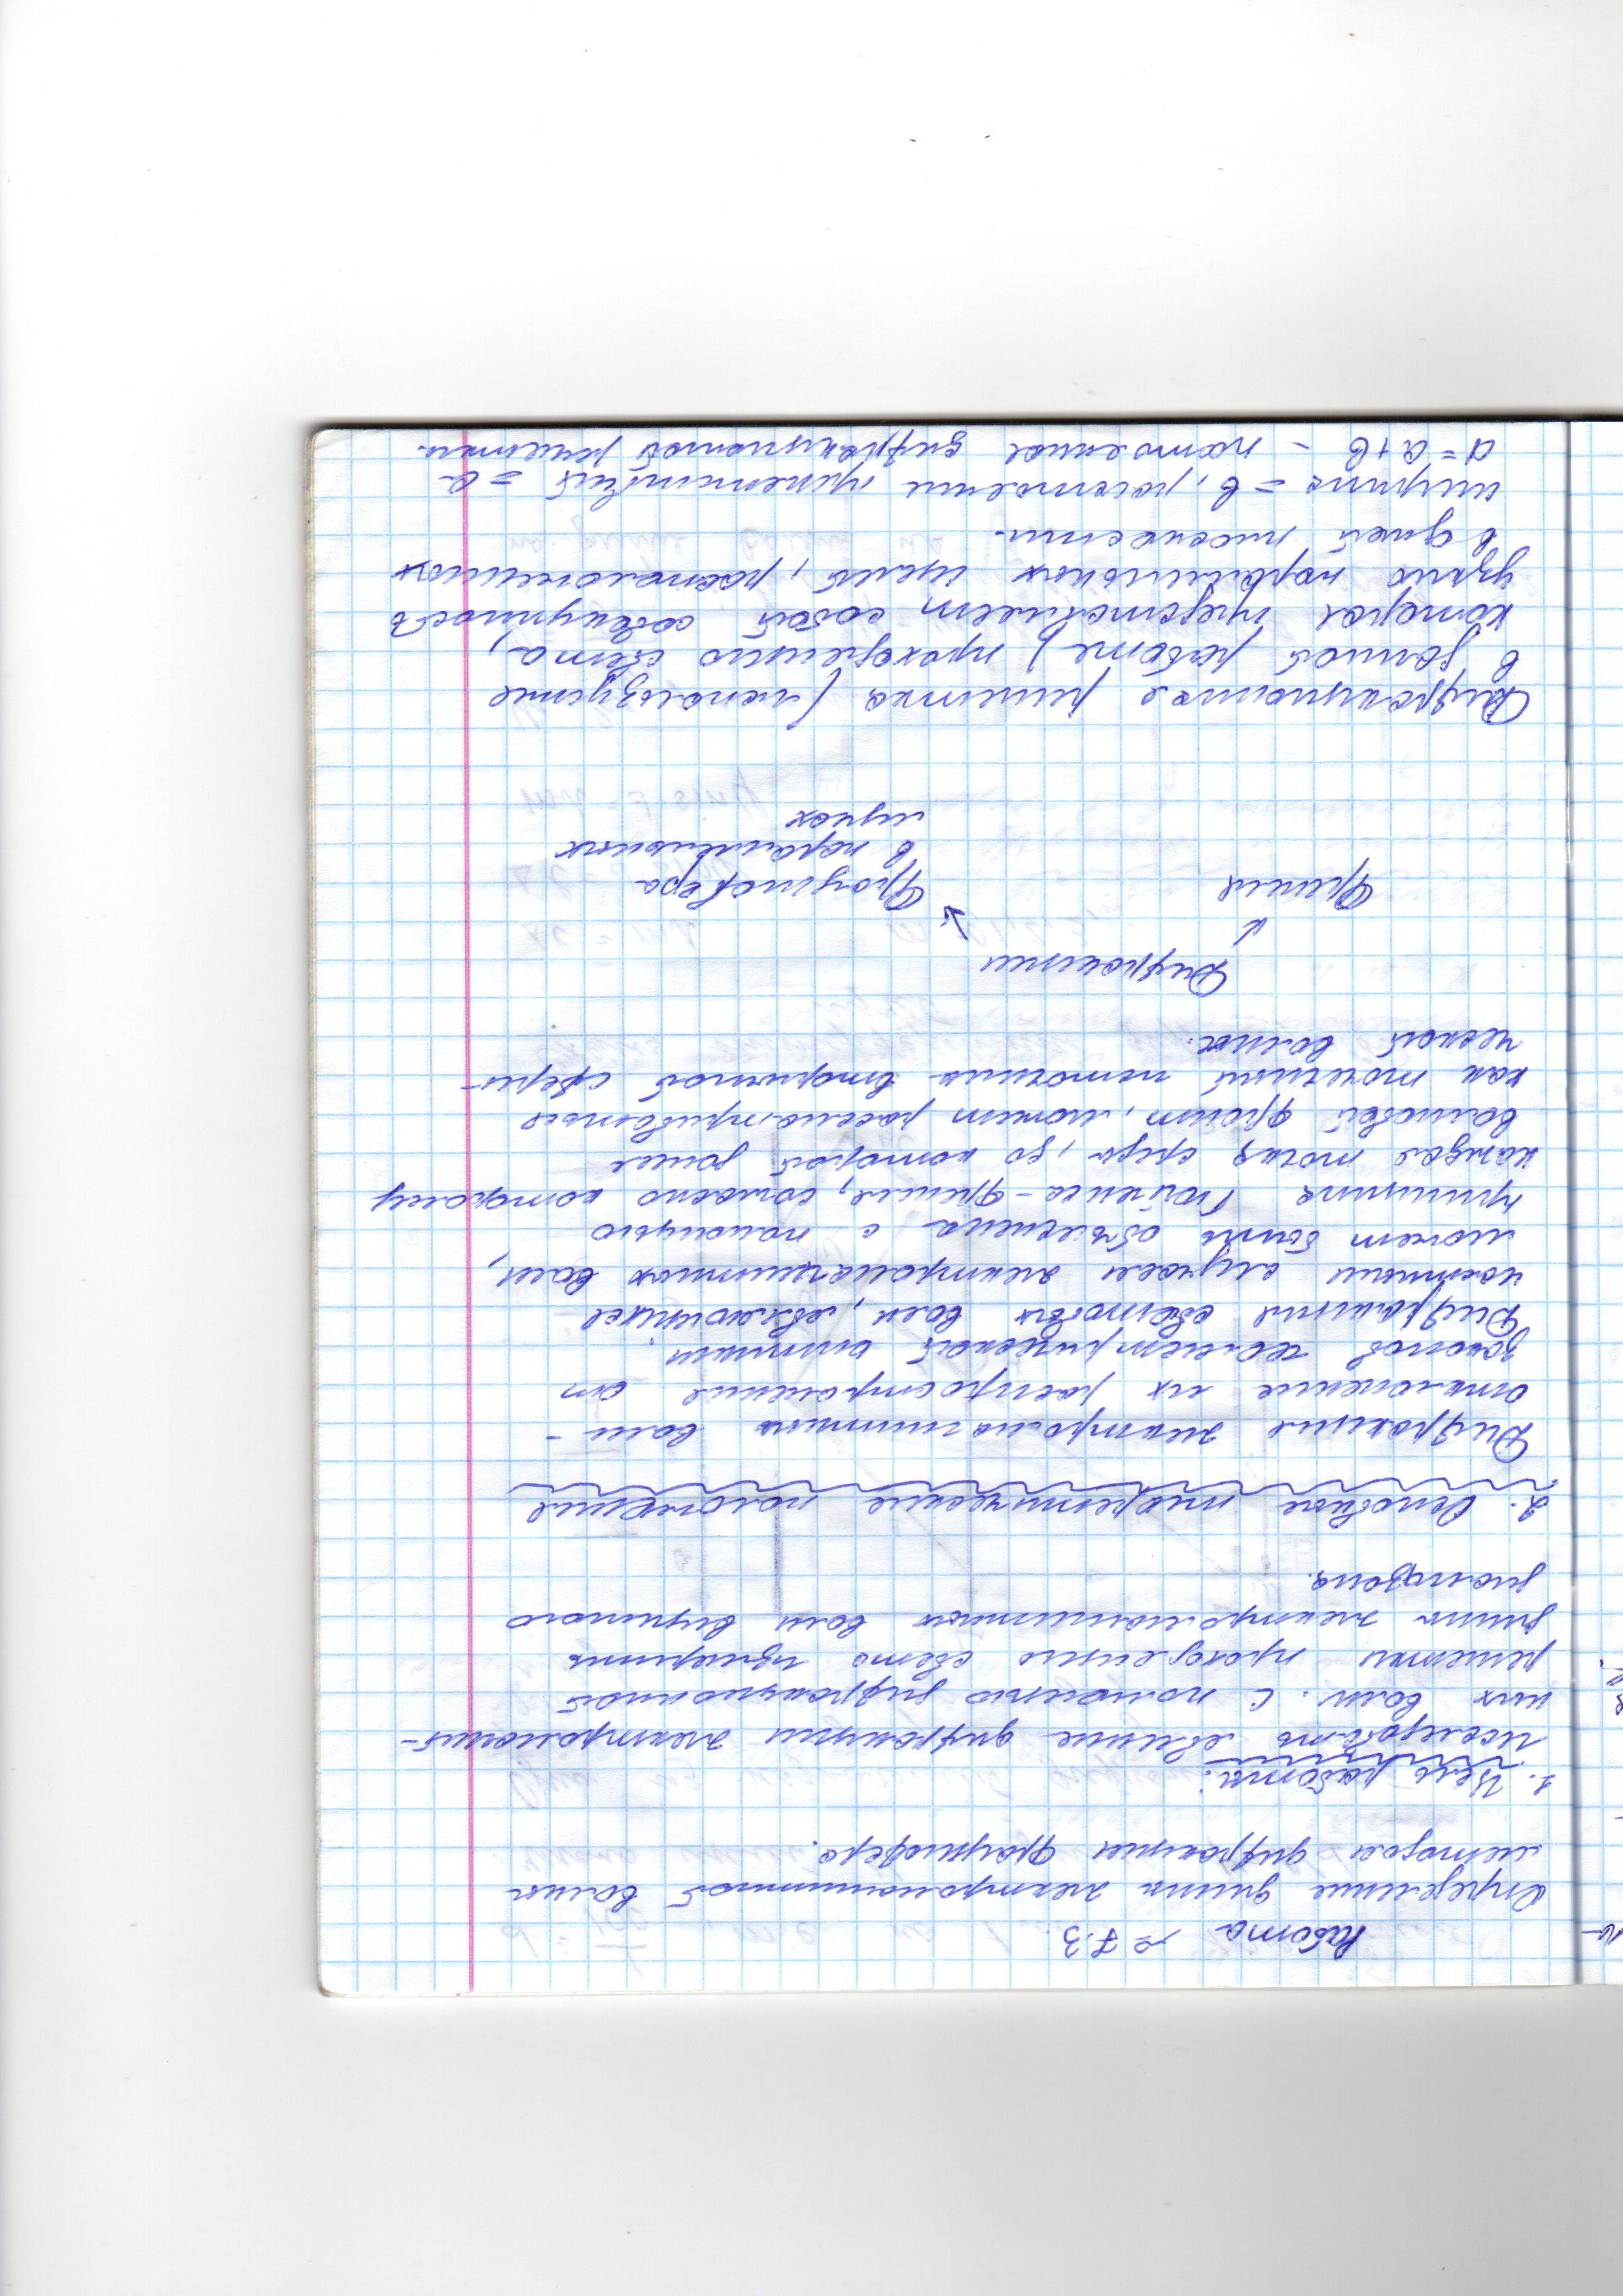 Работа № 7.3.
Определение длины электромагнитной волны
методом дифракции Фраунгофера.
1. Цель работы:
Исследовать явление дифракции электромагнит-
ных волн. С помощью дифракционной
решетки проходящего света измерить
длины электромагнитных волн видимого
диапазона.
2. Основные теоретические положения
Дифракция электромагнитных волн -
отклонение их распространения от
законов геометрической оптики.
Дифракция световых волн, являющихся
частным случаем электромагнитных волн,
может быть объяснена с помощью
принципа Гюйгенса-Френеля, согласно которому
каждая точка среды, до которой дошел
волновой фронт, может рассматриваться
как точечный источник вторичной сфери-
ческой волны.
Дифракции
Френеля
Фраунгофера
в параллельных
лучах
Дифракционная решетка (используемая
в данной работе) проходящего света,
которая представляет собой совокупность
узких параллельных щелей, расположенных
в одной плоскости.
ширина = b, расстояние препятствий = a
d = a + b - постоянная дифракционной решетки.